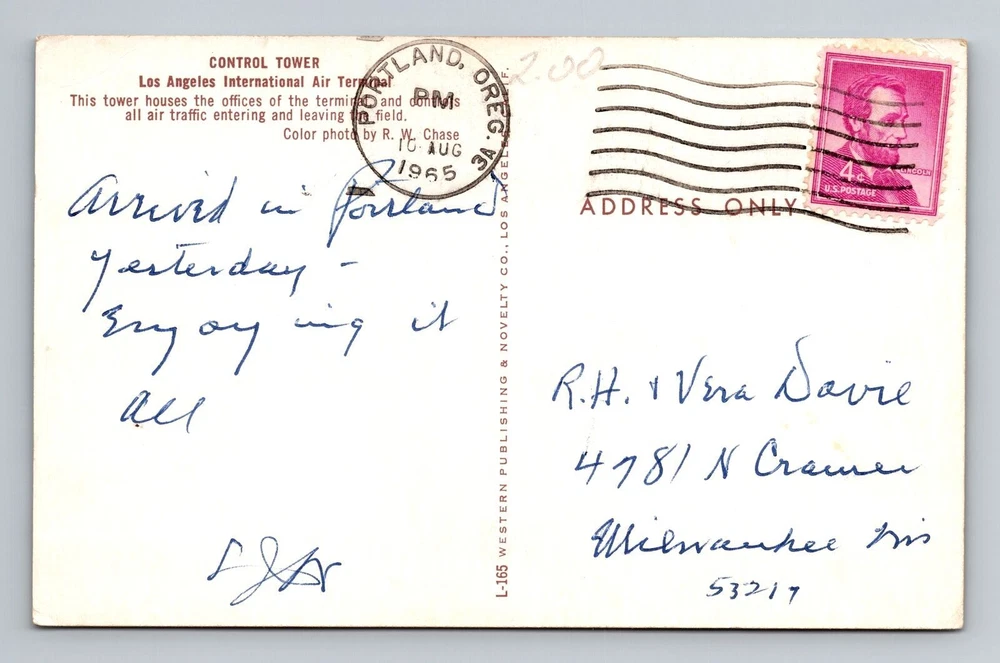 CONTROL TOWER
Los Angeles International Air Terminal
This tower houses the offices of the terminal and controls
all air traffic entering and leaving the field.
Color photo by R. W. Chase
PORTLAND, OREG. 3A
PM
10 AUG
1965
2.00
4¢
LINCOLN
U.S. POSTAGE
ADDRESS ONLY
Arrived in Portland
Yesterday -
Enjoying it
All
L-165 WESTERN PUBLISHING & NOVELTY CO., LOS ANGELES
R.H. & Vera Davie
4781 N Cramer
Milwaukee Wis
53217